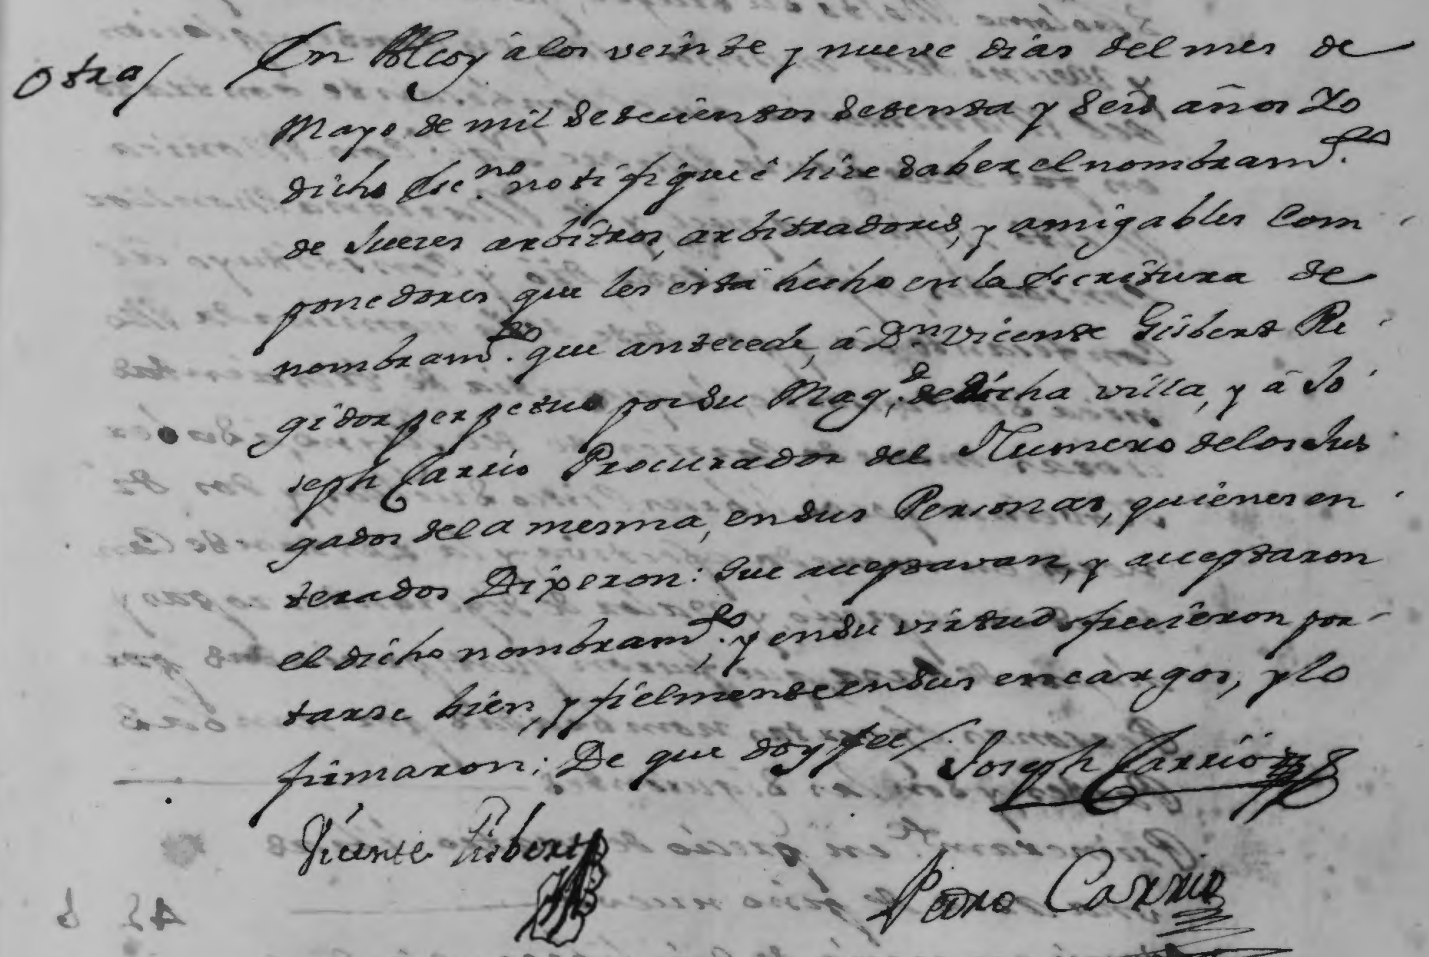 Otra/ En Alcoy á los veinte y nueve dias del mes de
Mayo de mil setecientos setenta y seis años Yo
dicho Esc.no notifiqué é hize saber el nombram.to
de Jueces arbitros, arbitradores, y amigables Com-
ponedores que les está hecho en la Escritura de
nombram.to que antecede, á D.n Vicente Gisbert Re-
gidor perpetuo por su Mag.d de dicha villa, y á Jo-
seph Carrió Procurador del Numero de los Jus-
gados de la mesma, en sus Personas, quienes en-
terados Dixeron: Que aceptavan, y aceptaron
el dicho nombram.to; y en su virtud ofrecieron por-
tarse bien, y fielmente en sus encargos, y lo
firmaron; De que doy fee/. Joseph Carrió
Vicente Gisbert
Pedro Carrió